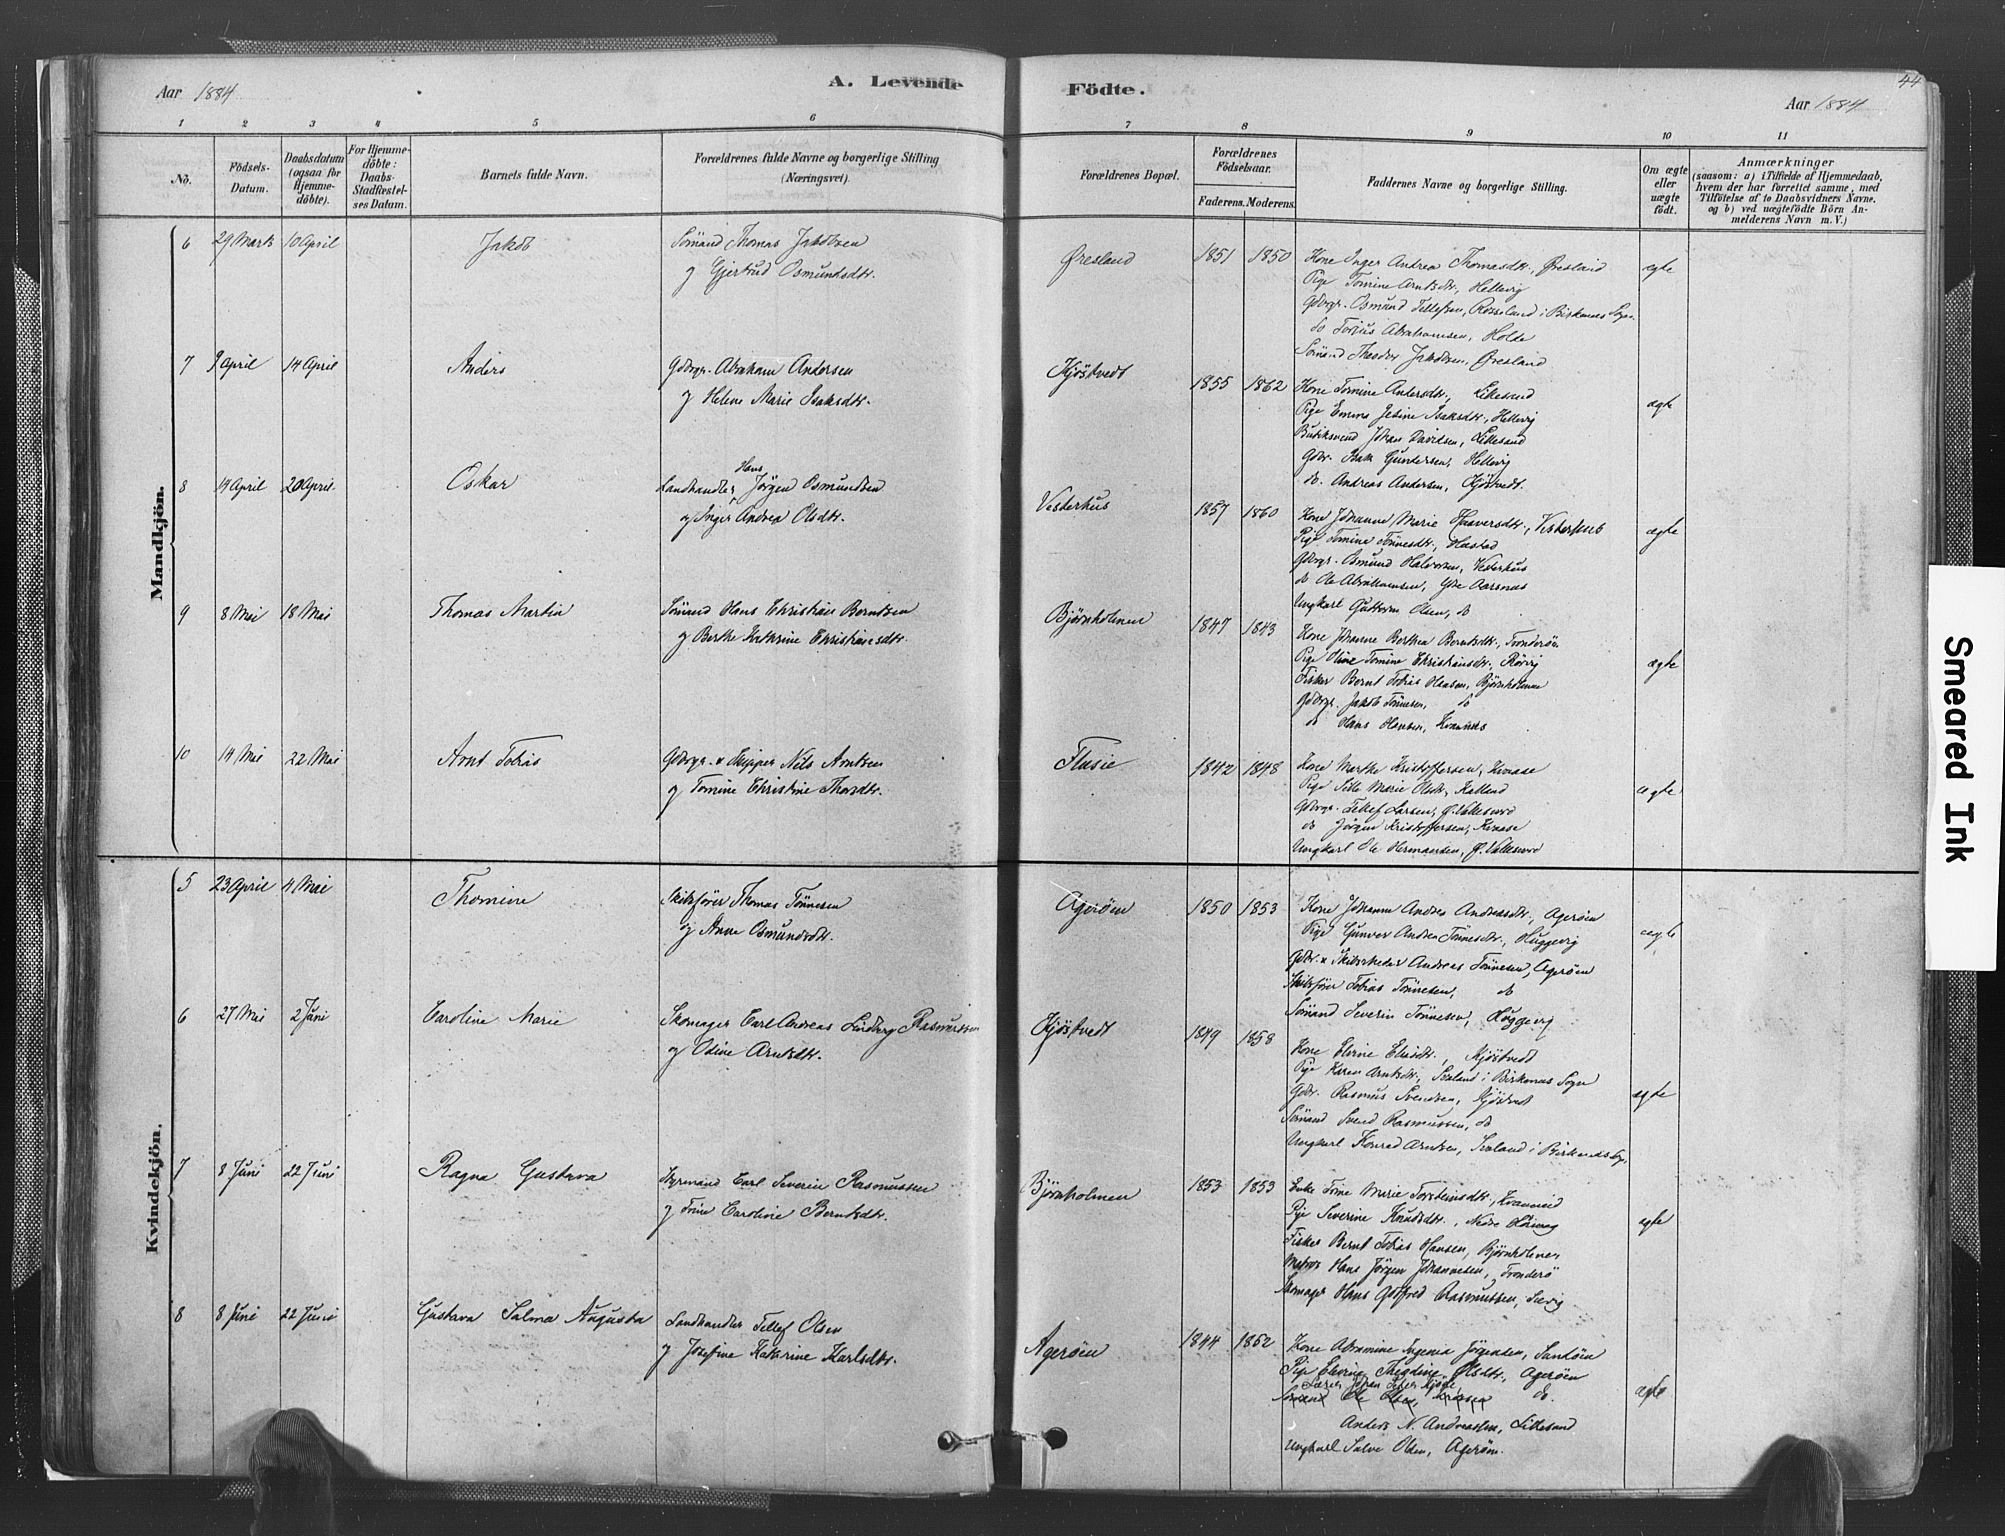 44
Aar 1884
A. Levende
Födte.
Aar 1884
1 2 3 4 5 6 7 8 9 10 11
No.
Födsels-Datum.
Daabsdatum (ogsaa for Hjemme-döbte).
For Hjemme-döbte: Daabs-Stadfæstel-ses Datum.
Barnets fulde Navn.
Forældrenes fulde Navne og borgerlige Stilling (Næringsvei).
Forældrenes Bopæl.
Forældrenes Födselsaar.
Faderens. Moderens.
Faddernes Navne og borgerlige Stilling.
Om ægte eller uægte födt.
Anmærkninger
(saasom: a) i Tilfælde af Hjemmedaab,
hvem der har forrettet samme, med
Tilföielse af to Daabsvidners Navne,
og b) ved uægtefödte Börn An-
melderens Navn m. V.)
Mandkjön.
6 29 Marts 10 April Jakob
Sömand Thomas Jakobsen
og Gjertrud Osmundsdtr.
Øresland 1851 1850
Kone Inger Andrea Thomasdtr., Øresland
Pige Tomine Arntsdtr., Hellevig
Gdbrgr. Osmund Tellefsen, Røsseland i Birkenes Sogn
do Tobius Abrahamsen, Holde
Sömand Theodor Jakobsen, Øresland
ægte
7 9 April 14 April Anders
Gdbrgr. Abraham Andersen
og Helene Marie Isaksdtr.
Kjöstvedt 1855 1862
Kone Tomine Andersdtr., Lillesand
Pige Emma Jesine Isaksdtr., Hellevig
Butiksvend Johan Davidsen, Lillesand
Gdbr. Isak Gundersen, Hellevig
do. Andreas Andersen, Kjöstvedt.
ægte
8 14 April 20 April Oskar
Landhandler Hans Jörgen Osmundsen
og Inger Andrea Olsdtr.
Vesterhus 1857 1860
Kone Johanne Marie Haaversdtr., Vesterhus
Pige Tomine Tönnesdtr., Hæstad
Gdbrgr. Osmund Halvorsen, Vesterhus
do Ole Abrahamsen, Ytre Aarsnes
Ungkarl Guttorm Olsen, do
ægte
9 8 Mai 18 Mai Thomas Martin
Sömand Hans Christian Berntsen
og Berthe Kathrine Christiansdtr.
Bjørnholmen 1847 1843
Kone Johanne Berthea Berntsdtr., Tronderöen
Pige Oline Tomine Christiansdtr., Rörvig
Fisker Bernt Tobias Hansen, Bjørnholmen
Gdbrgr. Jakob Tönnesen, do
do Hans Hansen, Kvannes
ægte
10 14 Mai 22 Mai Arnt Tobias
Gdbrgr. & Skipper Nils Arntsen
og Tomine Christine Thorsdtr.
Flusie 1842 1848
Kone Marthe Kristoffersen, Kvaase
Pige Sille Marie Olsdtr., Kalland
Gdbrgr. Tellef Larsen, Ø. Vallesverd
do Jörgen Kristoffersen, Kvaase
Ungkarl Ole Hermansen, Ø. Vallesverd
ægte
Kvindekjön.
5 23 April 4 Mai Thomine
Skibsfører Thomas Tönnesen
og Anne Osmundsdtr.
Ageröen 1850 1853
Kone Johanne Andrea Andreasdtr., Ageröen
Pige Gunver Andrea Tönnesdtr., Huggevig
Gdbr. & Skibsreder Andreas Tönnesen, Ageröen
Skibsfører Tobias Tönnesen, do
Sömand Severin Tönnesen, Huggevig
ægte
6 27 Mai 2 Juni Caroline Marie
Skomager Carl Andreas Lindberg Rasmussen
og Odine Arntsdtr.
Kjöstvedt 1849 1858
Kone Elevine Eliasdtr., Kjöstvedt
Pige Karen Arntsdtr., Sæland i Birkenes Sogn
Gdbr. Rasmus Svendsen, Kjöstvedt
Sömand Svend Rasmussen, do
Ungkarl Konrad Arntsen, Sæland i Birkenes Sgn.
ægte
7 8 Juni 22 Juni Ragna Gustava
Styrmand Carl Severin Rasmussen
og Trine Caroline Berntsdtr.
Bjørnholmen 1853 1853
Enke Tone Marie Torsteinsdtr., Kvanneid
Pige Severine Knudsdtr., Nedre
Fisker Bernt Tobias Hansen, Bjørnholmen
Matros Hans Jörgen Johannesen, Tronderö
Skomager Hans Gotfred Rasmussen, Sævig
ægte
8 8 Juni 22 Juni Gustava Salma Augusta
Landhandler Tellef Olsen
og Josefine Kathrine Karlsdtr.
Ageröen 1844 1852
Kone Abramine Eugenia Jörgensen, Sandöen
Pige Elevine Thegdine Olsdtr., Ageröen
Lærer Johan Peter
Sömand Ole Olsen, do.
Anders N. Andreassen, Lillesand
Ungkarl Salve Olsen, Ageröen.
ægte
Smeared Ink